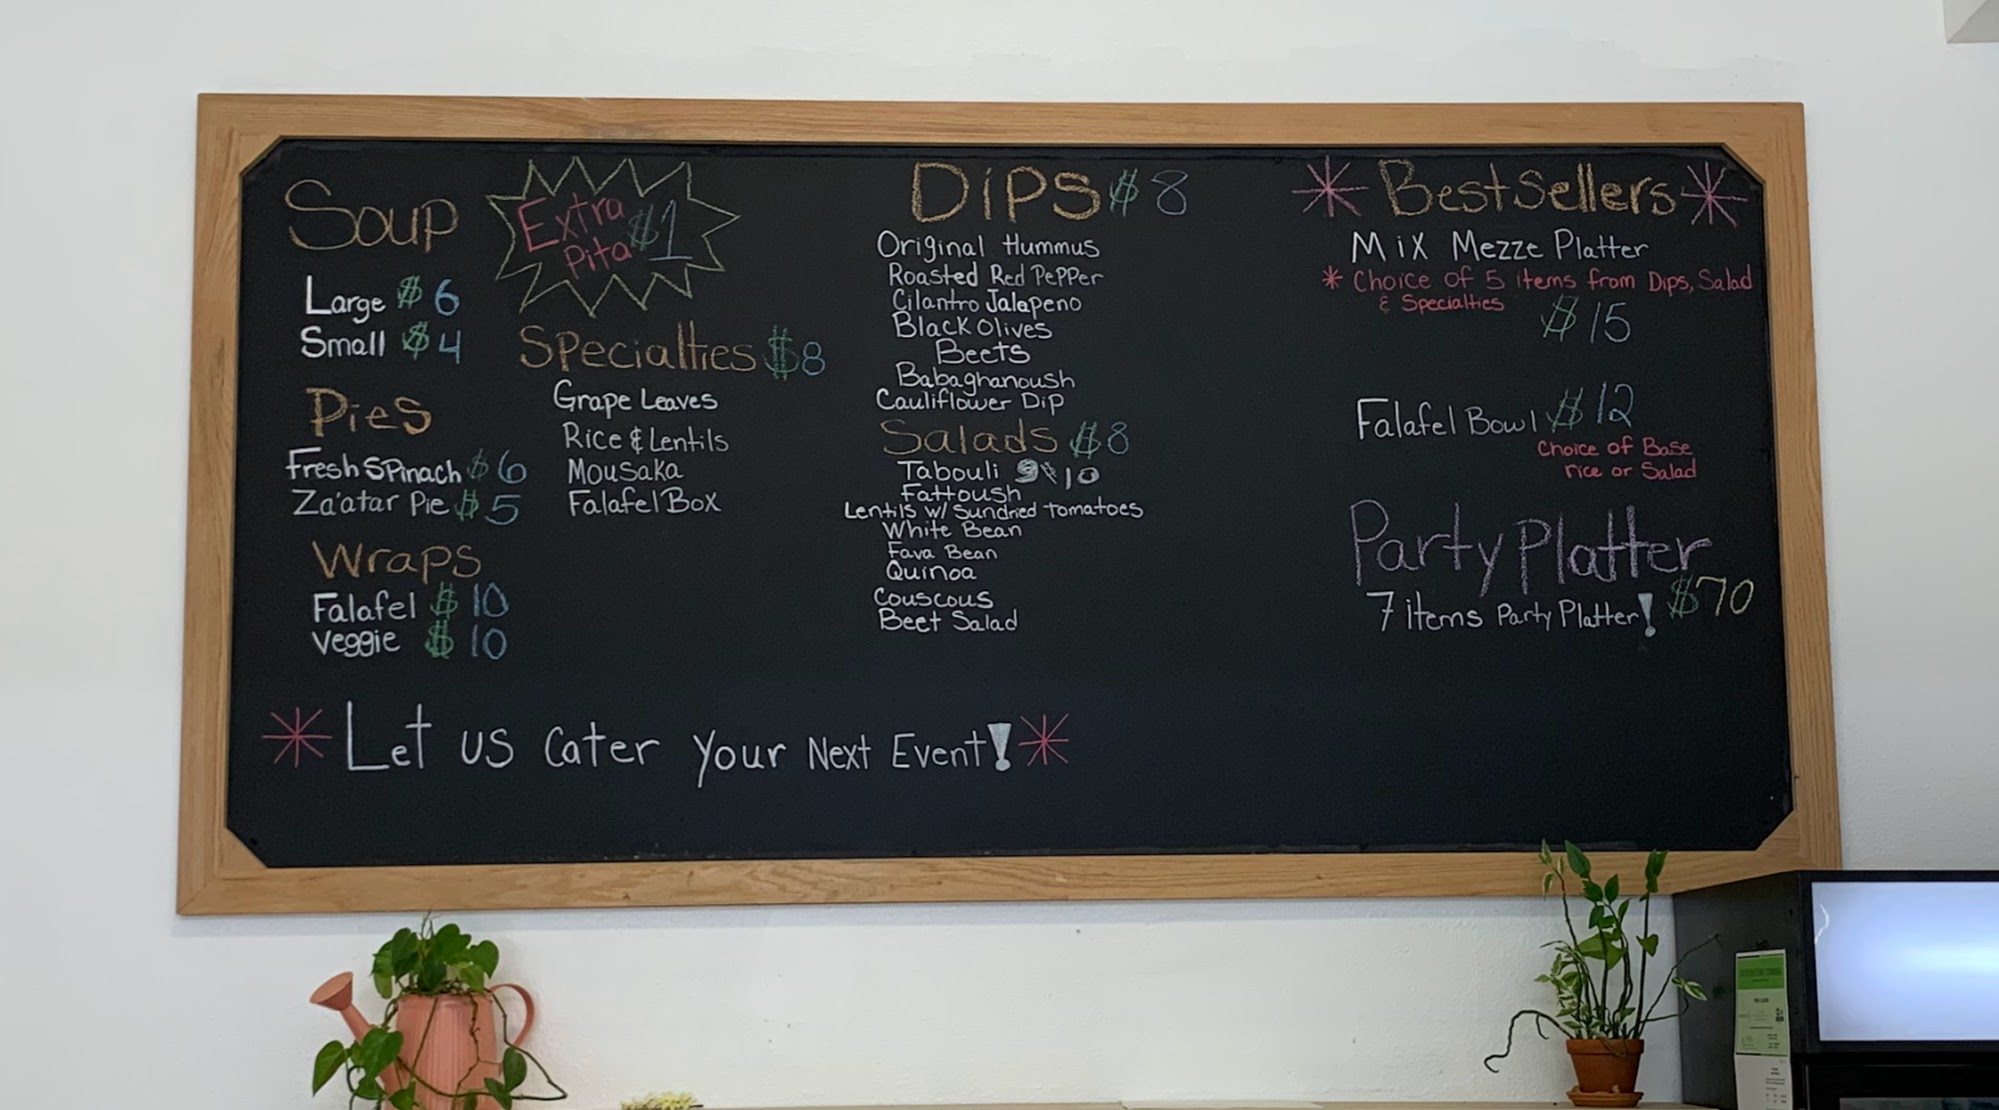 Soup
Large $6
Small $4
Extra
Pita $1
Pies
Fresh Spinach $6
Za'atar Pie $5
Wraps
Falafel $10
Veggie $10
Specialties $8
Grape Leaves
Rice & Lentils
Mousaka
Falafel Box
Dips $8
Original Hummus
Roasted Red Pepper
Cilantro Jalapeno
Black Olives
Beets
Babaghanoush
Cauliflower Dip
Salads $8
Tabouli $10
Fattoush
Lentils w/ Sundried tomatoes
White Bean
Fava Bean
Quinoa
Couscous
Beet Salad
* Best Sellers *
Mix Mezze Platter
* Choice of 5 items from Dips, Salad
& Specialties
$15
Falafel Bowl $12
Choice of Base
rice or Salad
Party Platter
7 items Party Platter! $70
* Let us cater your Next Event! *